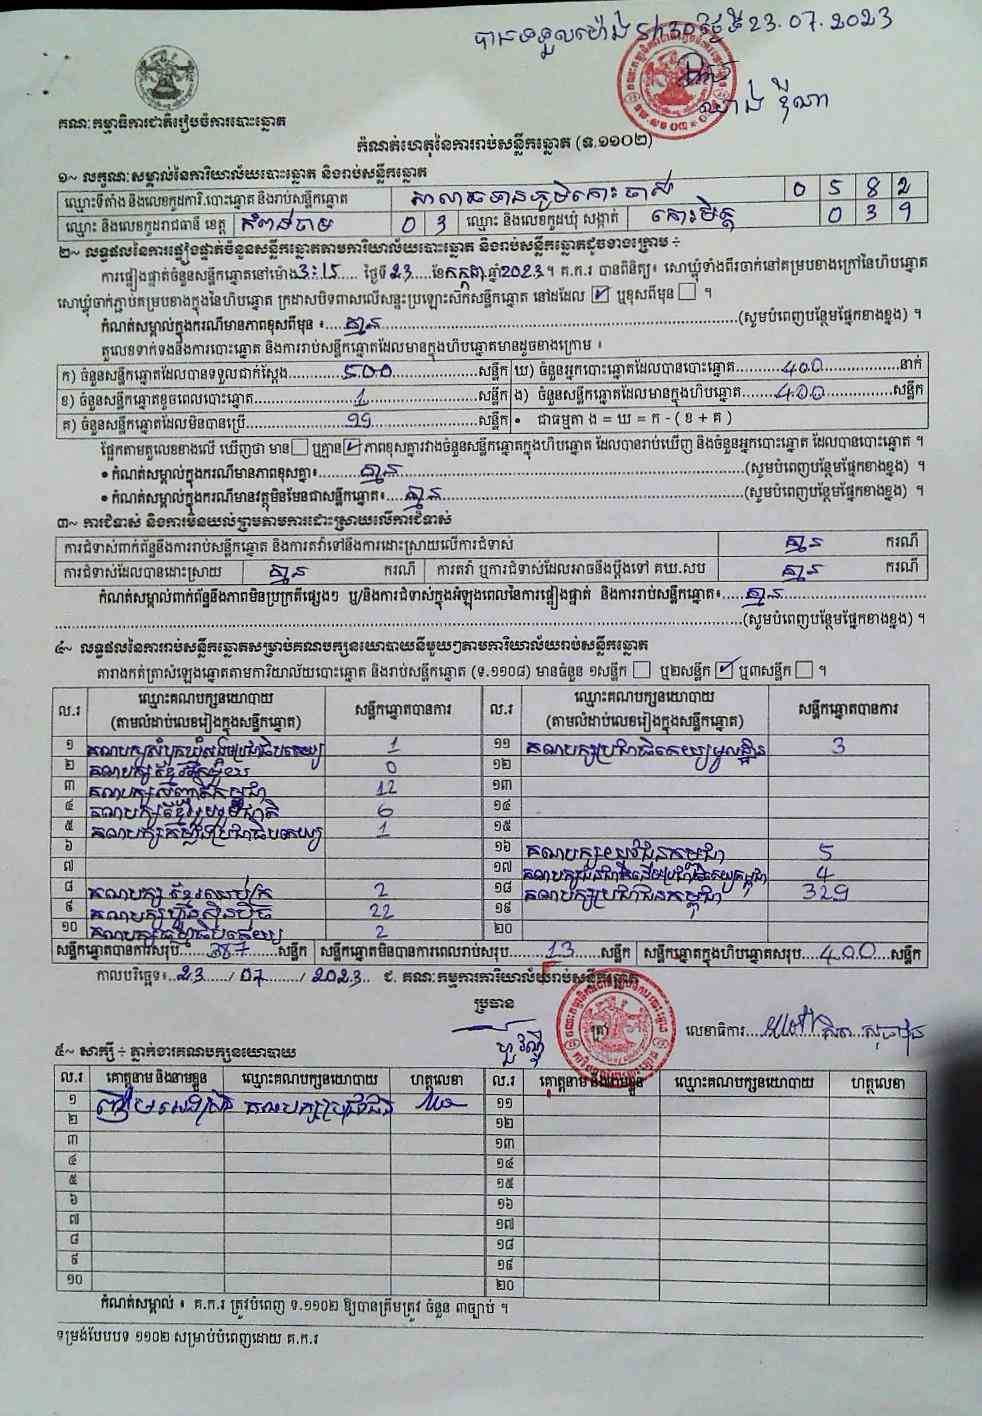 បានទទួលម៉ោង 5h30 ថ្ងៃទី 23.07.2023
គណៈកម្មាធិការជាតិរៀបចំការបោះឆ្នោត
កំណត់ហេតុនៃការរាប់សន្លឹកឆ្នោត (ទ.១១០២)
១~ លក្ខណៈសម្គាល់នៃការិយាល័យបោះឆ្នោត និងរាប់សន្លឹកឆ្នោត
ឈ្មោះទីតាំង និងលេខកូដការិ.បោះឆ្នោត និងរាប់សន្លឹកឆ្នោត សាលាឆទានភូមិកោះចាស់ 0 5 8 2
ឈ្មោះ និងលេខកូដរាជធានី ខេត្ត កំពង់ចាម 0 3 ឈ្មោះ និងលេខកូដឃុំ សង្កាត់ កោះមិត្ត 0 3 9
២~ លទ្ធផលនៃការផ្ទៀងផ្ទាត់ចំនួនសន្លឹកឆ្នោតតាមការិយាល័យបោះឆ្នោត និងរាប់សន្លឹកឆ្នោតដូចខាងក្រោម ÷
ការផ្ទៀងផ្ទាត់ចំនួនសន្លឹកឆ្នោតនៅម៉ោង 3:15 ថ្ងៃទី 23 ខែ កក្កដា ឆ្នាំ 2023 ។ គ.ក.រ បានពិនិត្យ៖ សោឃ្លុំទាំងពីរចាក់នៅគម្របខាងក្រៅនៃហិបឆ្នោត
សោឃ្លុំចាក់ភ្ជាប់គម្របខាងក្នុងនៃហិបឆ្នោត ក្រដាសបិទពាសលើសន្ទះប្រឡោះស៊កសន្លឹកឆ្នោត នៅដដែល ☑ ឬខុសពីមុន ☐ ។
កំណត់សម្គាល់ក្នុងករណីមានភាពខុសពីមុន ៖ គ្មាន (សូមបំពេញបន្ថែមផ្នែកខាងខ្នង) ។
តួលេខទាក់ទងនឹងការបោះឆ្នោត និងការរាប់សន្លឹកឆ្នោតដែលមានក្នុងហិបឆ្នោតមានដូចខាងក្រោម ៖
ក) ចំនួនសន្លឹកឆ្នោតដែលបានទទួលជាក់ស្តែង 500 សន្លឹក ឃ) ចំនួនអ្នកបោះឆ្នោតដែលបានបោះឆ្នោត 400 នាក់
ខ) ចំនួនសន្លឹកឆ្នោតខូចពេលបោះឆ្នោត 1 សន្លឹក ង) ចំនួនសន្លឹកឆ្នោតដែលមានក្នុងហិបឆ្នោត 400 សន្លឹក
គ) ចំនួនសន្លឹកឆ្នោតដែលមិនបានប្រើ 99 សន្លឹក • ជាធម្មតា ង = ឃ = ក - ( ខ + គ )
ផ្អែកតាមតួលេខខាងលើ ឃើញថា មាន ☐ ឬគ្មាន ☑ ភាពខុសគ្នារវាងចំនួនសន្លឹកឆ្នោតក្នុងហិបឆ្នោត ដែលបានរាប់ឃើញ និងចំនួនអ្នកបោះឆ្នោត ដែលបានបោះឆ្នោត ។
• កំណត់សម្គាល់ក្នុងករណីមានភាពខុសគ្នា៖ គ្មាន (សូមបំពេញបន្ថែមផ្នែកខាងខ្នង) ។
• កំណត់សម្គាល់ក្នុងករណីមានវត្ថុមិនមែនជាសន្លឹកឆ្នោត៖ គ្មាន (សូមបំពេញបន្ថែមផ្នែកខាងខ្នង) ។
៣~ ការជំទាស់ និងការមិនយល់ព្រមតាមការដោះស្រាយលើការជំទាស់
ការជំទាស់ពាក់ព័ន្ធនឹងការរាប់សន្លឹកឆ្នោត និងការតវ៉ាទៅនឹងការដោះស្រាយលើការជំទាស់ គ្មាន ករណី
ការជំទាស់ដែលបានដោះស្រាយ គ្មាន ករណី ការតវ៉ា ឬការជំទាស់ដែលអាចនឹងប្តឹងទៅ គឃ.សប គ្មាន ករណី
កំណត់សម្គាល់ពាក់ព័ន្ធនឹងភាពមិនប្រក្រតីផ្សេងៗ ឬ/និងការជំទាស់ក្នុងអំឡុងពេលនៃការផ្ទៀងផ្ទាត់ និងការរាប់សន្លឹកឆ្នោត៖ គ្មាន
(សូមបំពេញបន្ថែមផ្នែកខាងខ្នង) ។
៤~ លទ្ធផលនៃការរាប់សន្លឹកឆ្នោតសម្រាប់គណបក្សនយោបាយនីមួយៗតាមការិយាល័យរាប់សន្លឹកឆ្នោត
តារាងកត់ត្រាសំឡេងឆ្នោតតាមការិយាល័យបោះឆ្នោត និងរាប់សន្លឹកឆ្នោត (ទ.១១០៨) មានចំនួន ១សន្លឹក ☐ ឬ២សន្លឹក ☑ ឬ៣សន្លឹក ☐ ។
ល.រ ឈ្មោះគណបក្សនយោបាយ (តាមលំដាប់លេខរៀងក្នុងសន្លឹកឆ្នោត) សន្លឹកឆ្នោតបានការ ល.រ ឈ្មោះគណបក្សនយោបាយ (តាមលំដាប់លេខរៀងក្នុងសន្លឹកឆ្នោត) សន្លឹកឆ្នោតបានការ
១ គណបក្សសំបុកឃ្មុំសង្គមប្រជាធិបតេយ្យ 1 ១១ គណបក្សប្រជាធិបតេយ្យមូលដ្ឋាន 3
២ គណបក្សខ្មែរអភិវឌ្ឍន៍ 0 ១២
៣ គណបក្សសញ្ជាតិកម្ពុជា 12 ១៣
៤ គណបក្សខ្មែររួបរួមជាតិ 6 ១៤
៥ គណបក្សកម្លាំងប្រជាធិបតេយ្យ 1 ១៥
៦ ១៦ គណបក្សយុវជនកម្ពុជា 5
៧ ១៧ គណបក្សជនជាតិដើមប្រជាធិបតេយ្យកម្ពុជា 4
៨ គណបក្សខ្មែរឈប់ក្រ 2 ១៨ គណបក្សប្រជាជនកម្ពុជា 329
៩ គណបក្សហ្វ៊ុនស៊ិនប៉ិច 22 ១៩
១០ គណបក្សធម្មាធិបតេយ្យ 2 ២០
សន្លឹកឆ្នោតបានការសរុប 387 សន្លឹក សន្លឹកឆ្នោតមិនបានការពេលរាប់សរុប 13 សន្លឹក សន្លឹកឆ្នោតក្នុងហិបឆ្នោតសរុប 400 សន្លឹក
កាលបរិច្ឆេទ៖ 23 / 07 / 2023 ជ. គណៈកម្មការការិយាល័យរាប់សន្លឹកឆ្នោត
ប្រធាន
លេខាធិការ
៥~ សាក្សី ÷ ភ្នាក់ងារគណបក្សនយោបាយ
ល.រ គោត្តនាម និងនាមខ្លួន ឈ្មោះគណបក្សនយោបាយ ហត្ថលេខា ល.រ គោត្តនាម និងនាមខ្លួន ឈ្មោះគណបក្សនយោបាយ ហត្ថលេខា
១ គណបក្សប្រជាជន ១១
២ ១២
៣ ១៣
៤ ១៤
៥ ១៥
៦ ១៦
៧ ១៧
៨ ១៨
៩ ១៩
១០ ២០
កំណត់សម្គាល់ ៖ គ.ក.រ ត្រូវបំពេញ ទ.១១០២ ឱ្យបានត្រឹមត្រូវ ចំនួន ៣ច្បាប់ ។
ទម្រង់បែបបទ ១១០២ សម្រាប់បំពេញដោយ គ.ក.រ